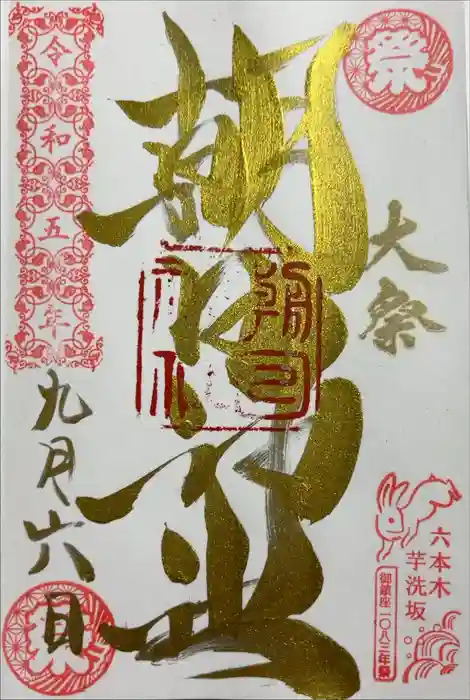 祭
大祭
六本木
芋洗坂
御鎮座一〇八三年祭
朝日神社
令和五年
九月六日
祭